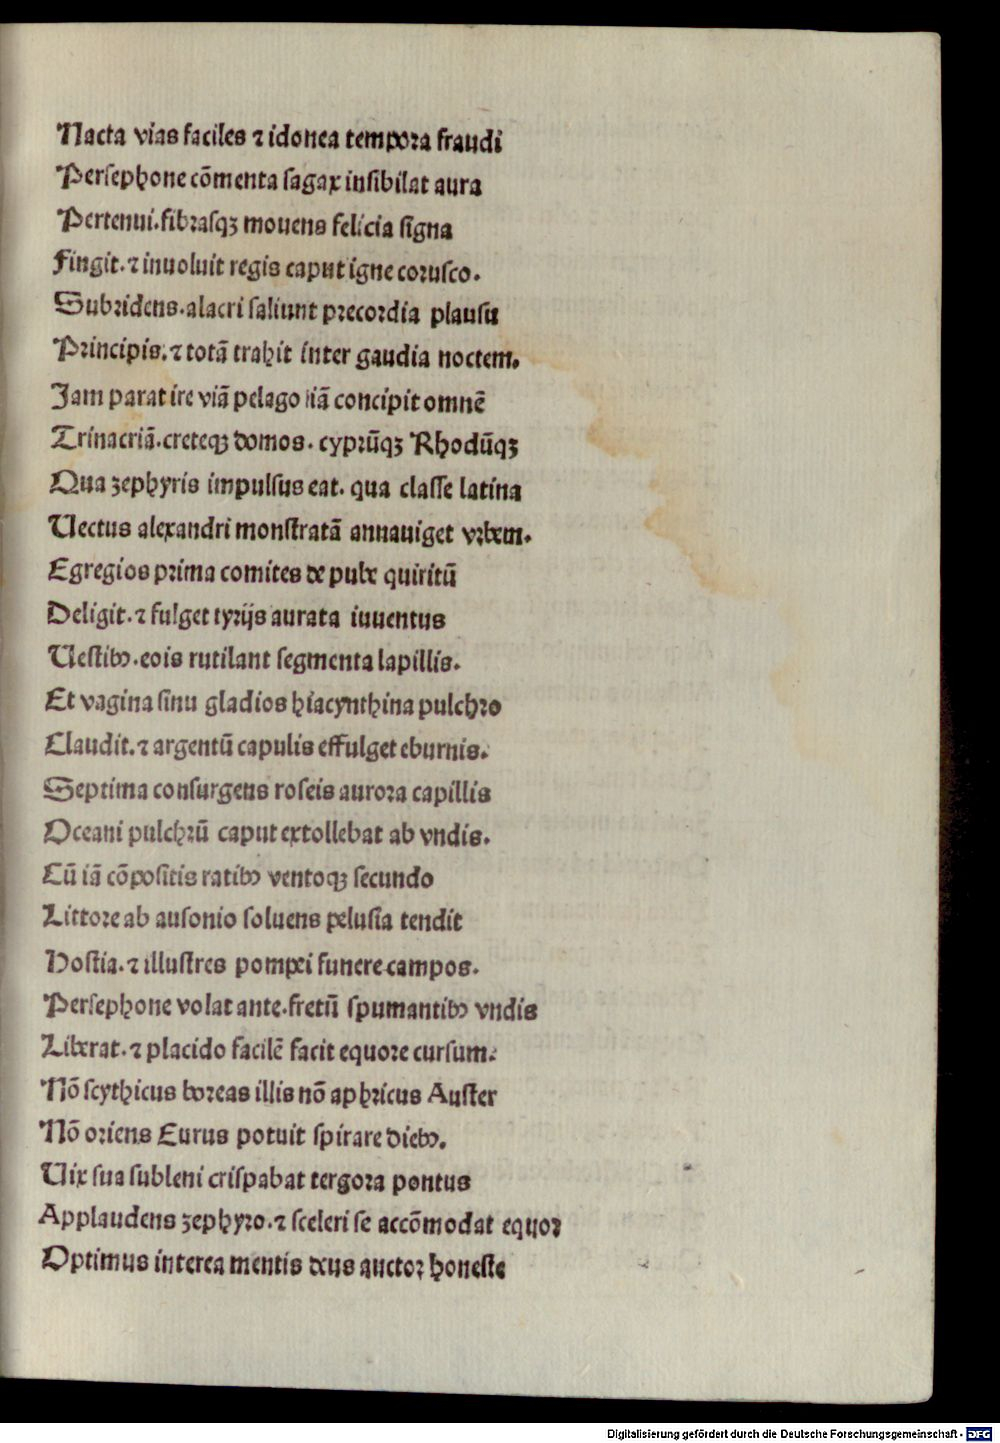 Nacta vias faciles ⁊ idonea tempora fraudi
Persephone cõmenta sagax insibilat aura
Pertenui. fibrasqꝫ mouens felicia signa
Fingit. ⁊ inuoluit regis caput igne corusco.
Subridens. alacri saliunt precordia plausu
Principis. ⁊ totã trahit inter gaudia noctem.
Jam parat ire viã pelago iã concipit omnẽ
Trinacriã. creteqꝫ domos. cyprũqꝫ Rhodũqꝫ
Qua zephyris impulsus eat. qua classe latina
Uectus alexandri monstratã annauiget vrbem.
Egregios prima comites de pube quiritũ
Deligit. ⁊ fulget tyrijs aurata iuuentus
Uestibꝰ. eois rutilant segmenta lapillis.
Et vagina sinu gladios hiacynthina pulchro
Claudit. ⁊ argentũ capulis effulget eburnis.
Septima consurgens roseis aurora capillis
Oceani pulchrũ caput extollebat ab vndis.
Cũ iã cõpositis ratibꝰ ventoqꝫ secundo
Littore ab ausonio soluens pelusia tendit
Hostia. ⁊ illustres pompei funere campos.
Persephone volat ante. fretũ spumantibꝰ vndis
Liberat. ⁊ placido facilẽ facit equore cursum.
Nõ scythicus boreas illis nõ aphricus Auster
Nõ oriens Eurus potuit spirare diebꝰ.
Uix sua subleni crispabat tergora pontus
Applaudens zephyro. ⁊ sceleri se accõmodat equor
Optimus interea mentis deus auctor honeste
Digitalisierung gefördert durch die Deutsche Forschungsgemeinschaft - DFG